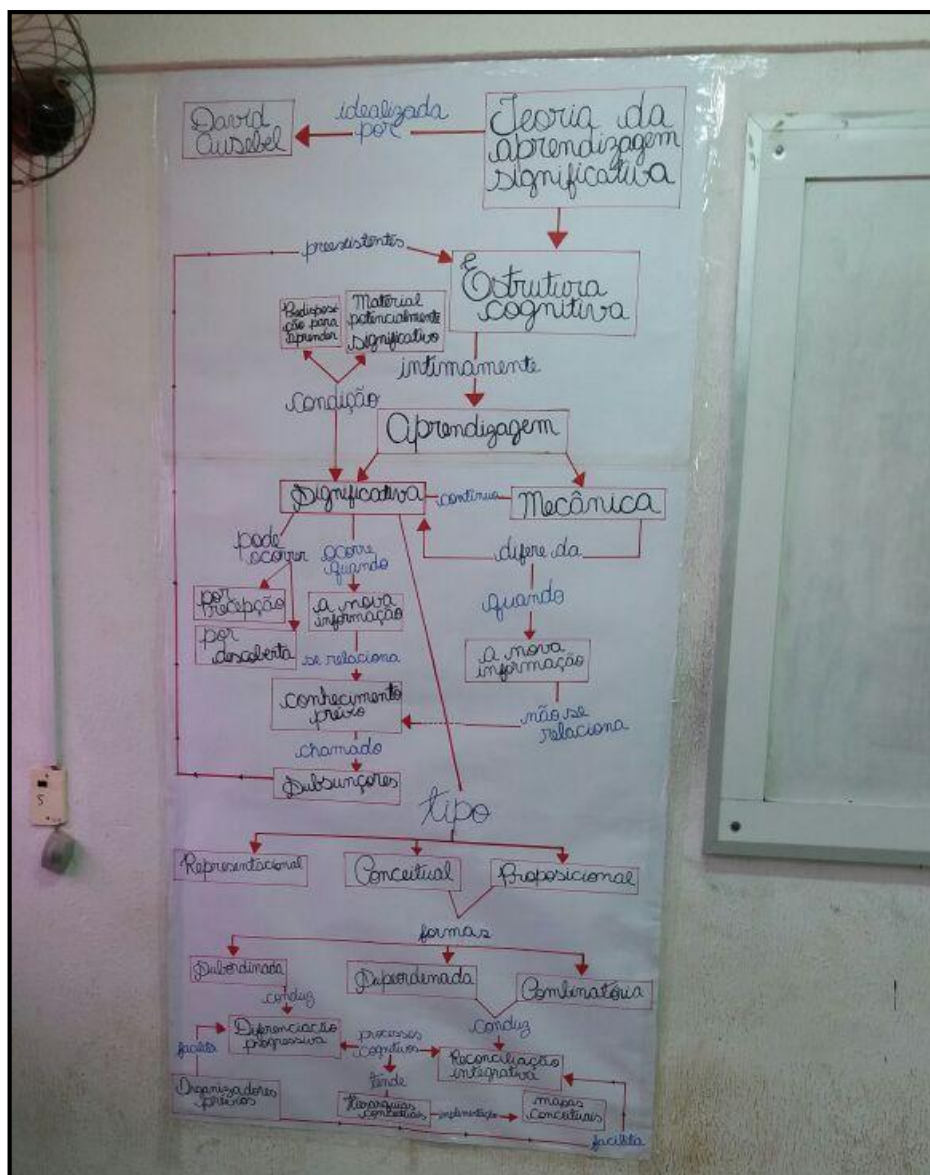 David
Ausebel
idealizada
por
Teoria da
aprendizagem
significativa
preexistentes
Estrutura
cognitiva
Predisposi
ção para
aprender
Material
potencialmente
significativo
intimamente
condição
Aprendizagem
Significativa
contínua
Mecânica
pode
ocorrer
ocorre
quando
difere da
por
recepção
a nova
informação
quando
por
descoberta
se relaciona
a nova
informação
conhecimento
prévio
não se
relaciona
chamado
Subsunçores
tipo
Representacional
Conceitual
Proposicional
formas
Subordinada
Superdenada
Combinatória
conduz
conduz
Difrenciação
progressiva
processos
cognitivos
Reconciliação
integrativa
facilita
tende
Organizadores
prévios
Hierarquias
conceituais
implementação
mapas
conceituais
facilita